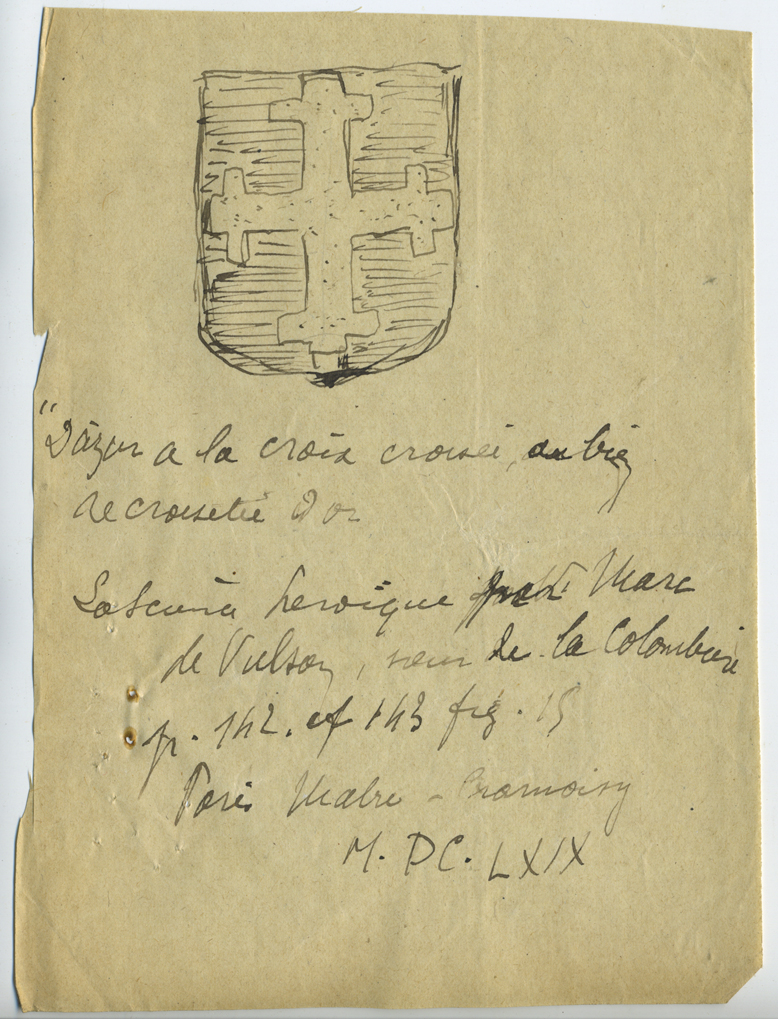 "D'azur a la croix croiseé, ou bien
recroisetté d'or
La Science heroique par Marc
de Vulson, sieur de la Colombiere
p. 142. et 143 fig. 15
Paris Mabre - Cramoisy
M. DC. LXIX